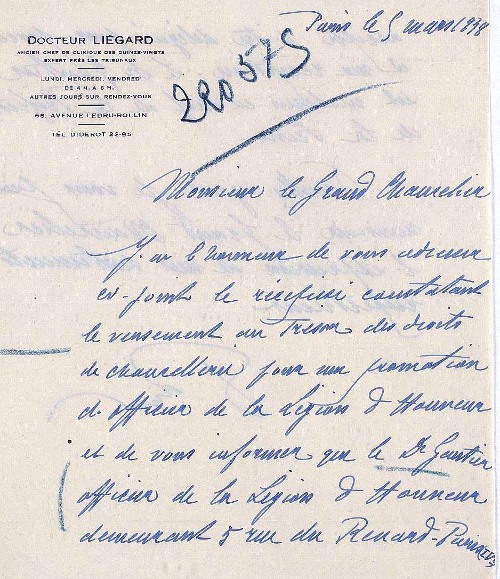 Paris le 5 mars 1938
DOCTEUR LIÉGARD
ANCIEN CHEF DE CLINIQUE DES QUINZE-VINGTS
EXPERT PRÈS LES TRIBUNAUX
LUNDI, MERCREDI, VENDREDI
DE 4 H. A 6 H.
AUTRES JOURS SUR RENDEZ-VOUS
66, AVENUE LEDRU-ROLLIN
TÉL. DIDEROT 22-95
220575
Monsieur le Grand Chancelier
J'ai l'honneur de vous adresser
ci-joint le récépissé constatant
le versement au Trésor des droits
de chancellerie pour ma promotion
d'officier de la Légion d'Honneur
et de vous informer que le Dr Gautier
officier de la Légion d'Honneur
demeurant 5 rue du Renard-Paris